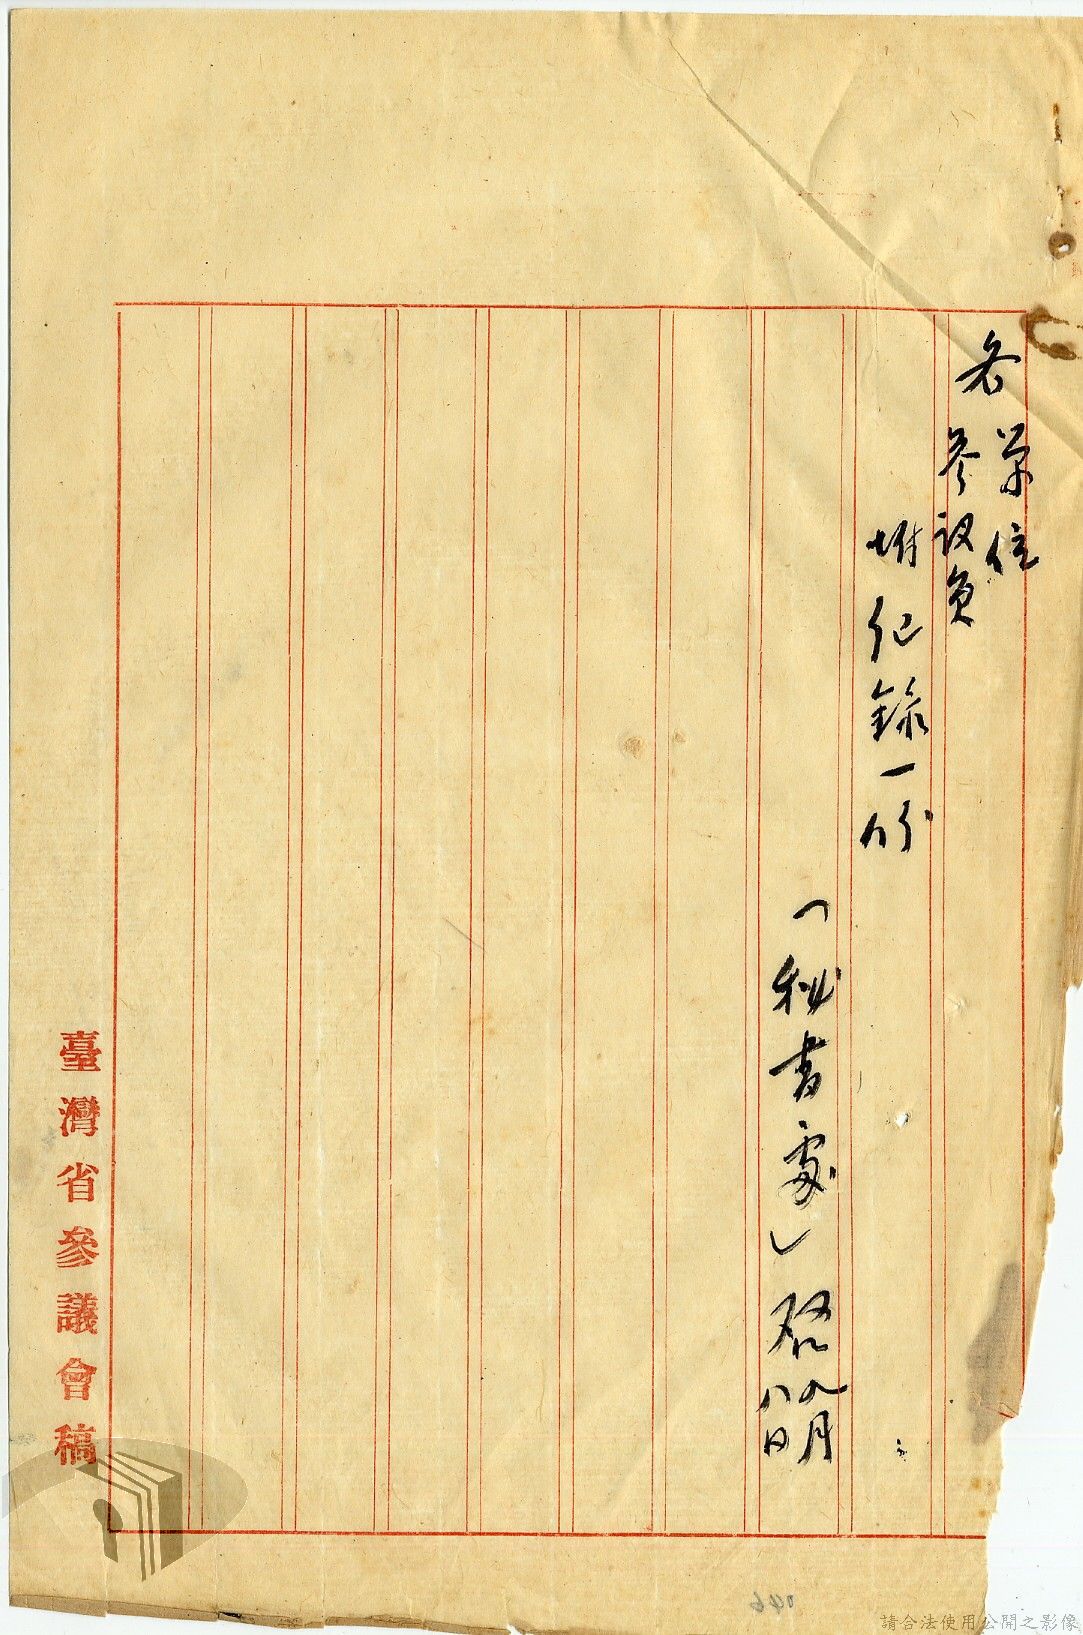 各單位
參議員
附紀錄一份
(秘書處)啓 八月八日
臺灣省參議會稿
146
請合法使用公開之影像